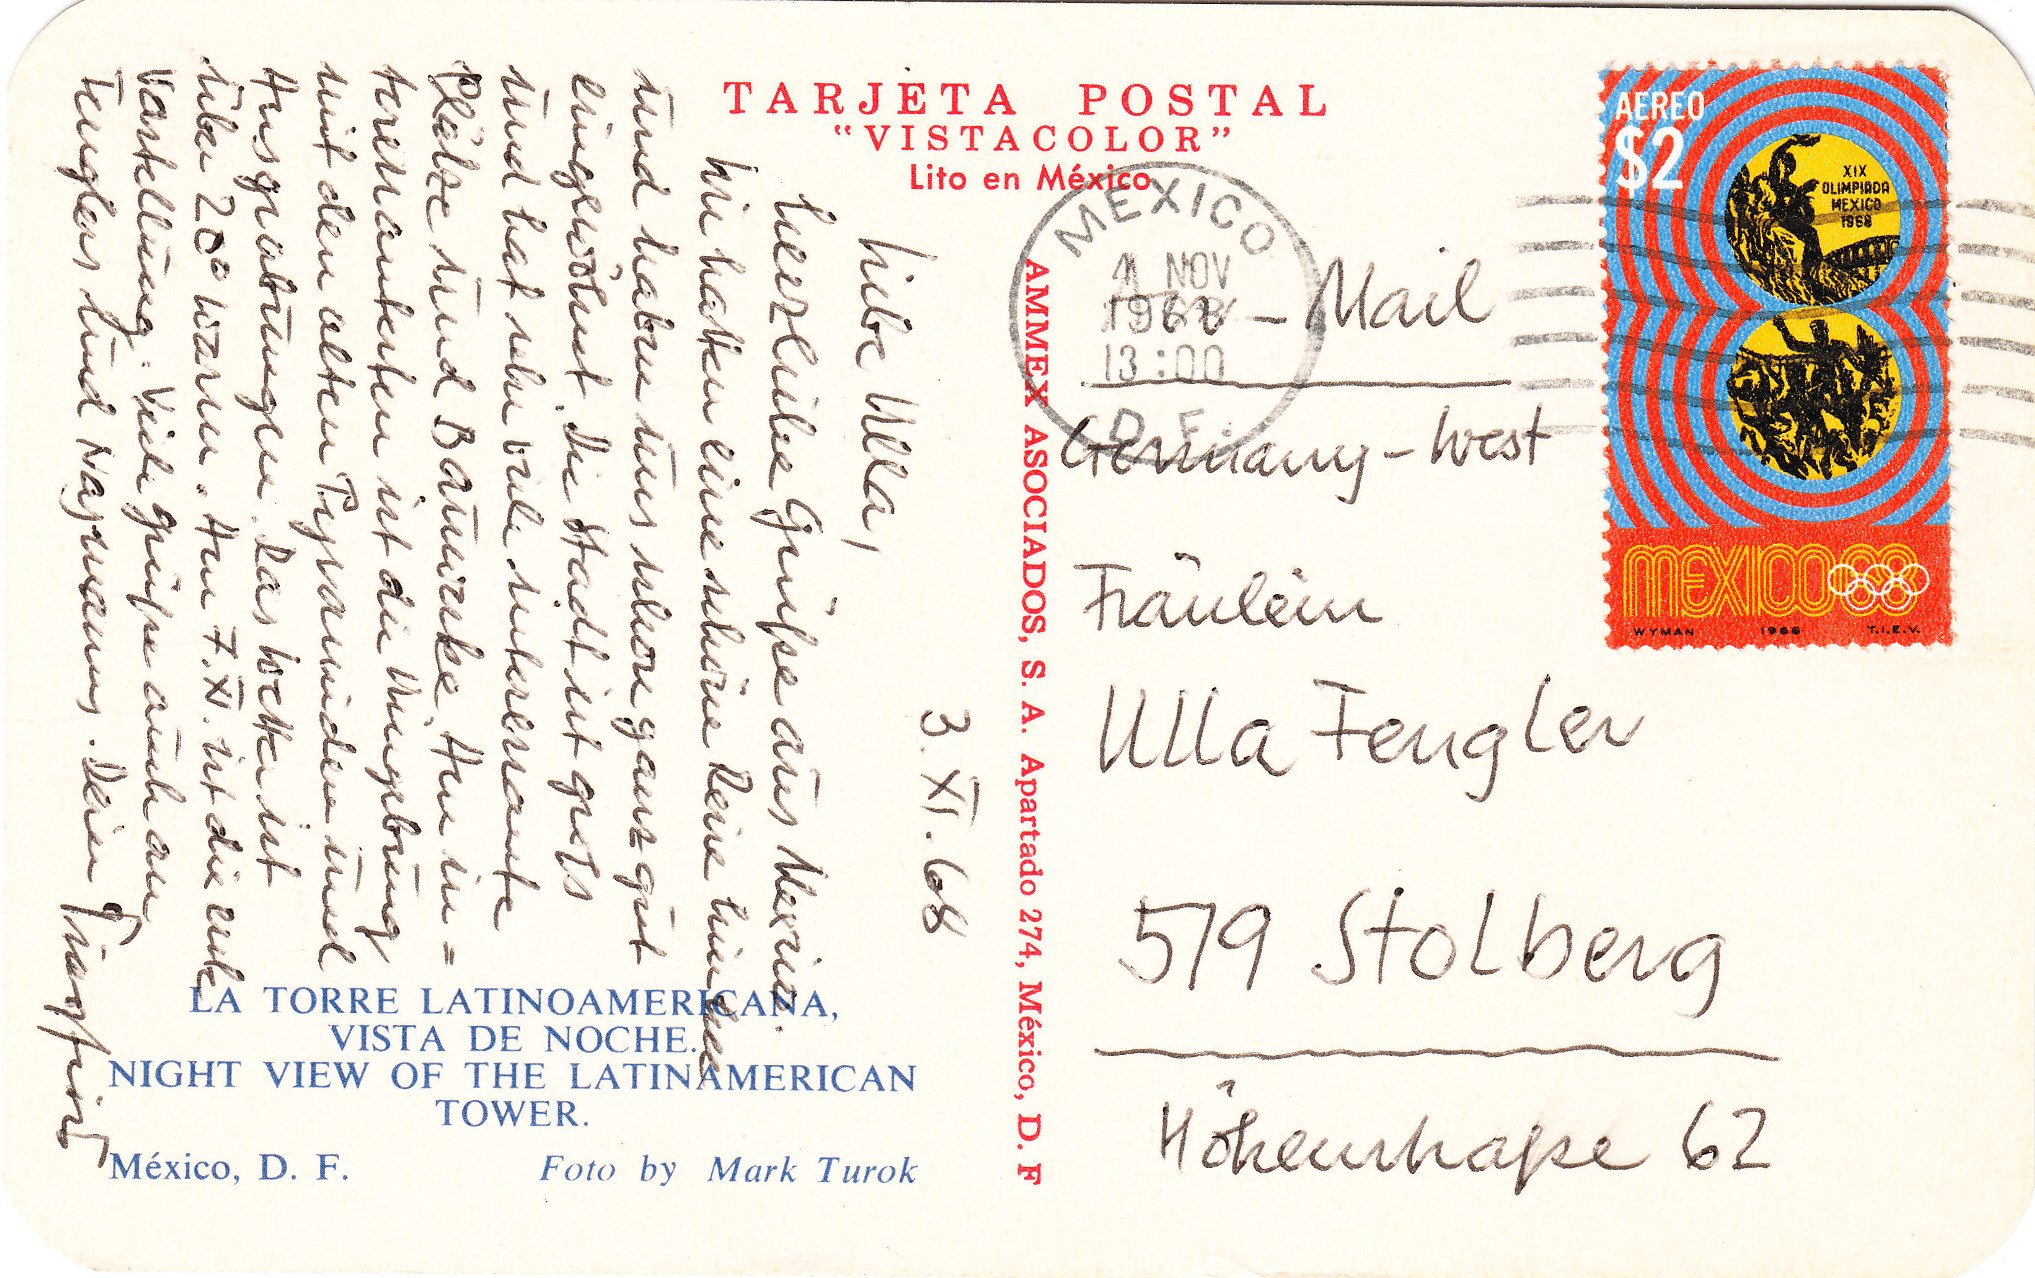 TARJETA POSTAL
"VISTACOLOR"
Lito en México
3. XI. 68
Liebe Ulla,
herzliche Grüße aus Mexico.
Wir hatten eine schöne Reise
und haben uns schon ganz gut
eingewöhnt. Die Stadt ist groß
und hat sehr viele interessante
Plätze und Bauwerke. Am in=
teressantesten ist die Umgebung
mit den alten Pyramiden und
Ausgrabungen. Das Wetter ist
über 20° warm. Am 7. XI. ist die erste
Vorstellung. Viele Grüße auch an
Fenglers und Naumanns. Dein
LA TORRE LATINOAMERICANA,
VISTA DE NOCHE.
NIGHT VIEW OF THE LATINAMERICAN
TOWER.
México, D. F.
Foto by Mark Turok
AMMEX ASOCIADOS, S. A. Apartado 274, México, D. F
MEXICO
NOV
1968
13:00
D. F.
– Mail
Germany – West
Fräulein
Ulla Fengler
519 Stolberg
Höhenstraße 62
AEREO
$2
XIX
OLIMPIADA
MEXICO
1968
MEXICO68
WYMAN 1968 T.I.E.V.